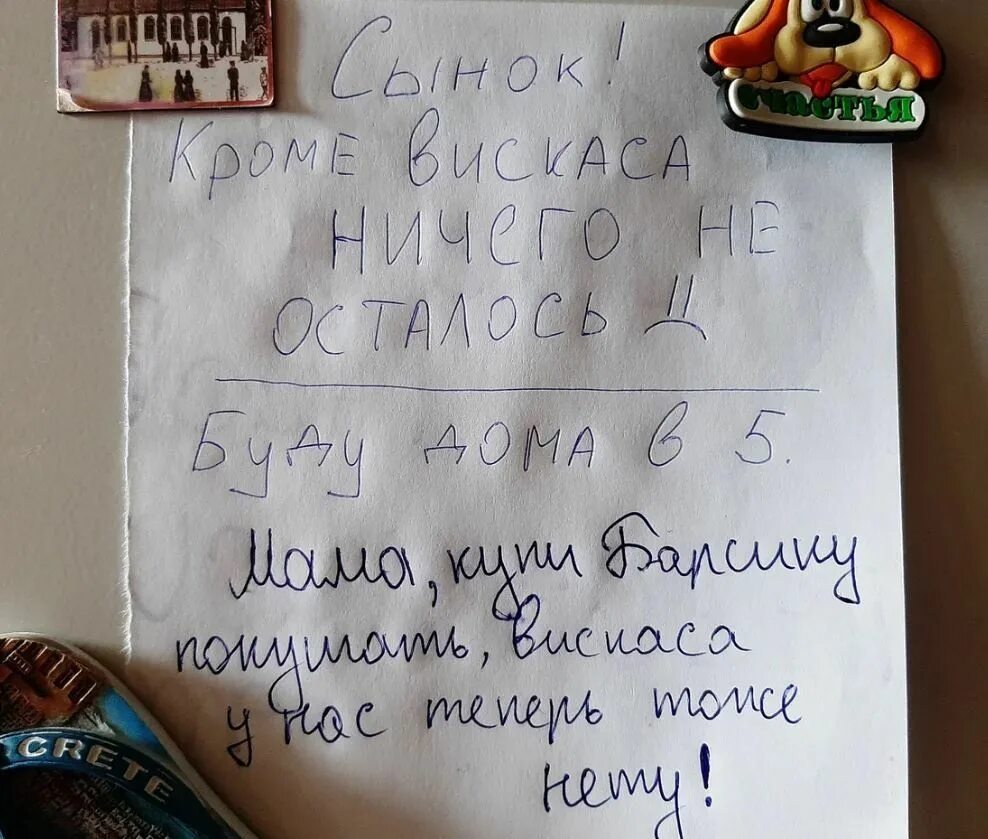 счастья
Сынок!
Кроме вискаса
ничего не
осталось Д
Буду дома в 5.
Мама, купи Барсику
покушать, вискаса
у нас теперь тоже
нету!
CRETE